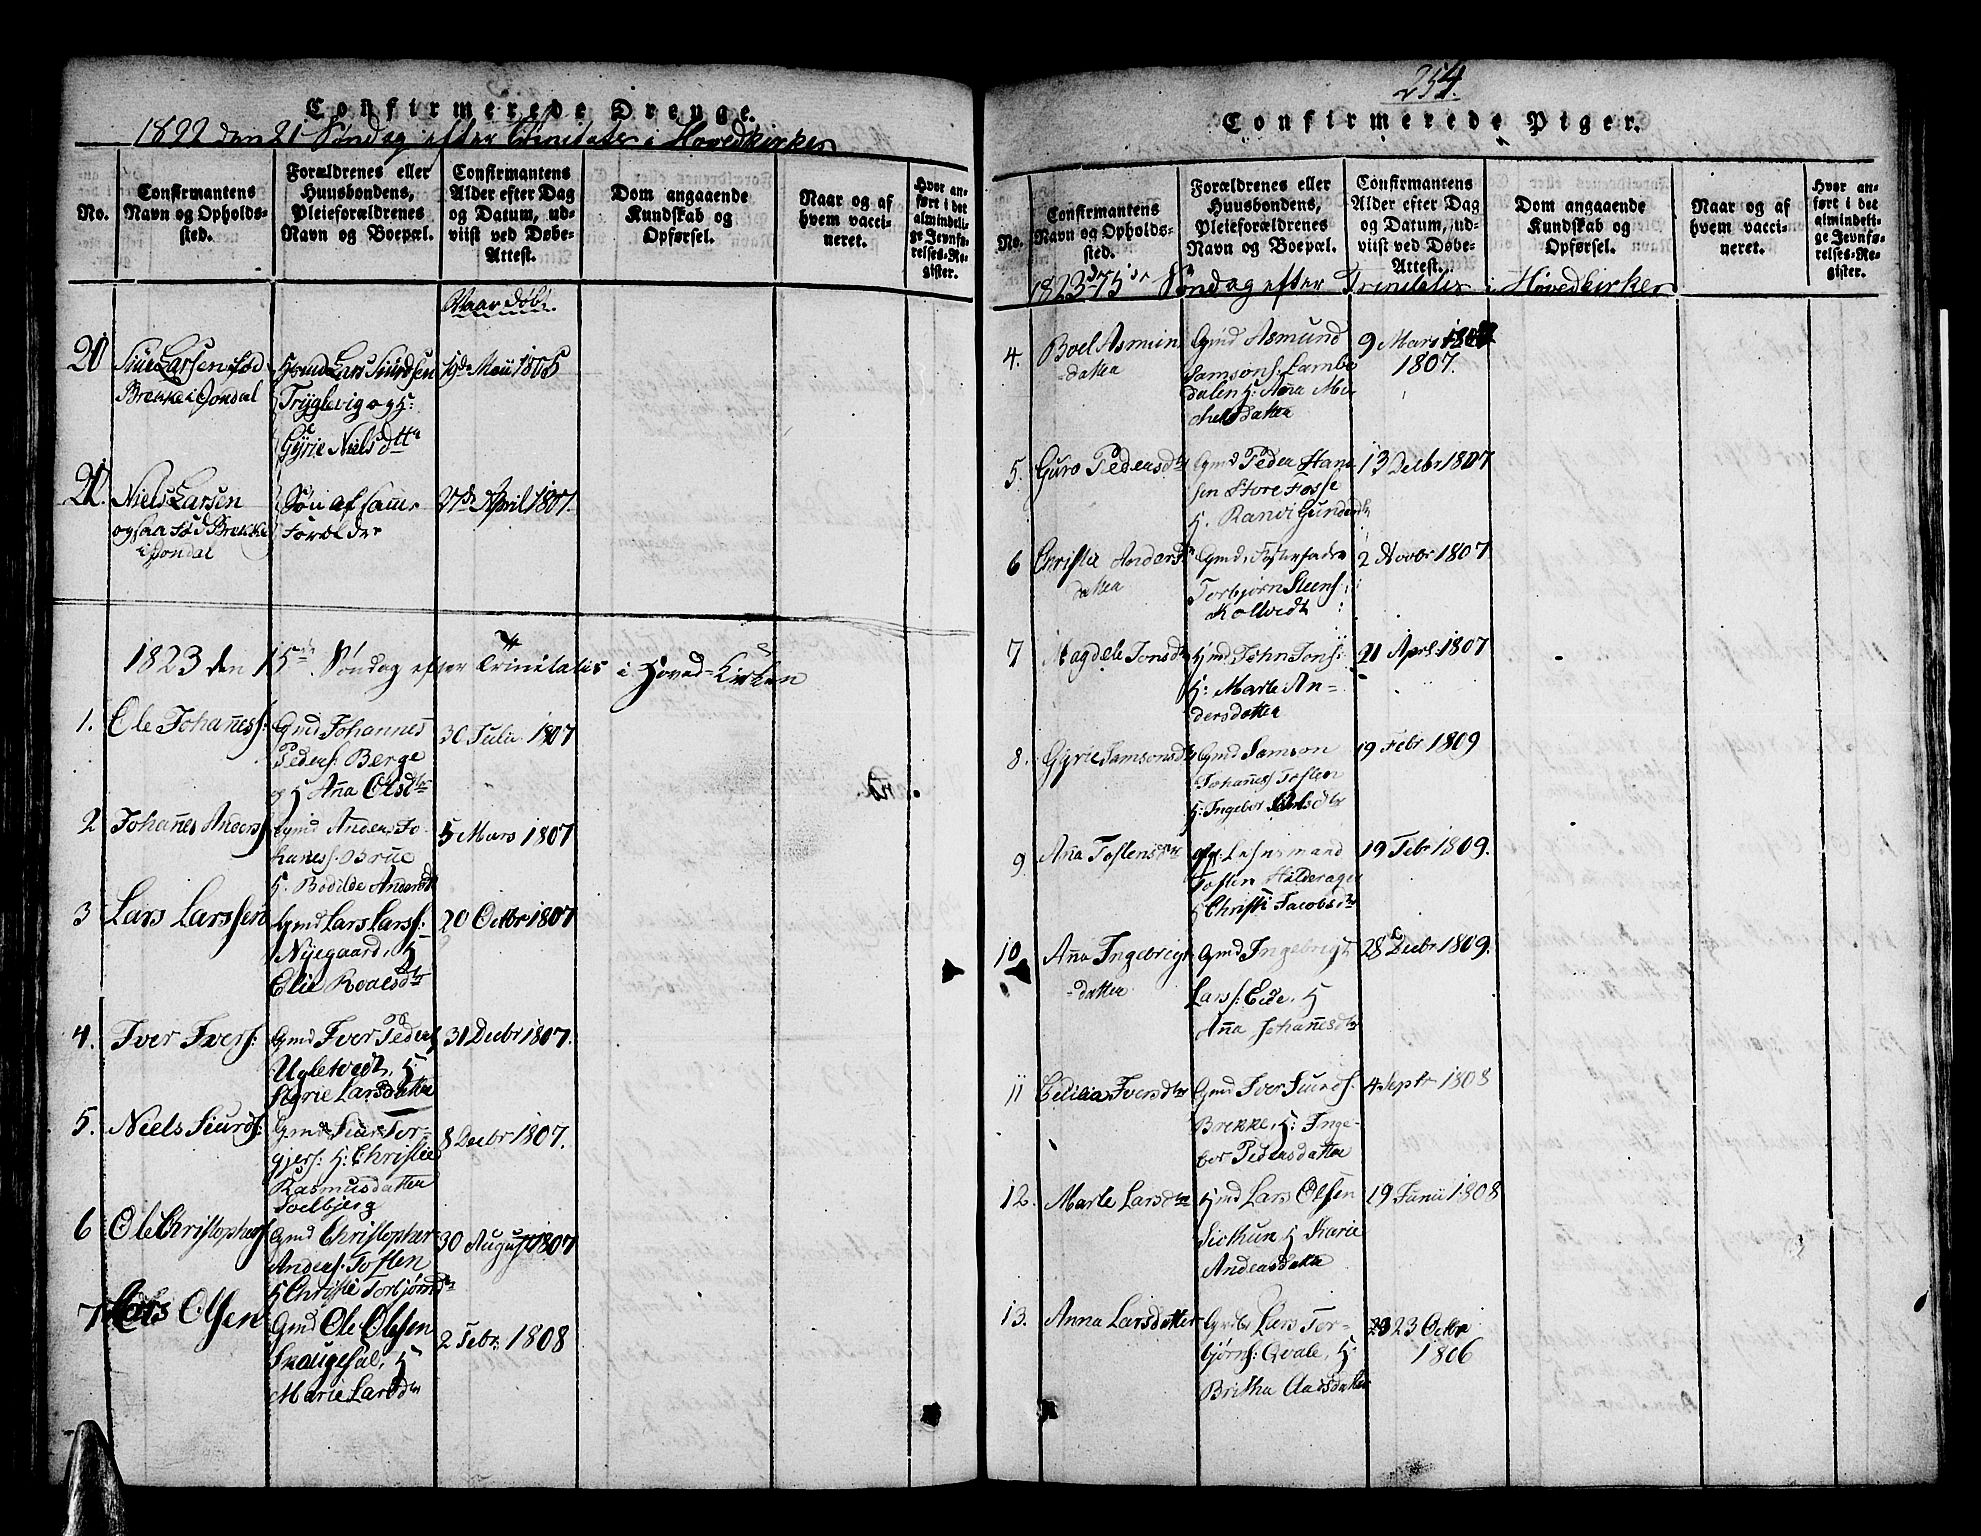 Confirmerede Drenge.
1822 den 21 Søndag efter Trinitatis i Hovedkirken
No.
Confirmantens
Navn og Opholds-
sted.
Forældrenes eller
Huusbondens,
Pleieforældrenes
Navn og Boepæl.
Confirmantens
Alder efter Dag
og Datum, ud-
viist ved Døbe-
Attest.
Dom angaaende
Kundskab og
Opførsel.
Naar og af
hvem vacci-
neret.
Hvor an-
ført i det
almindeli-
ge Jevnfø-
relses-Re-
gister.
Naar døbt
20
Larsen fød
Brekke i Jondal
Gmd Lars Siursen
Tryglevig og H:
Gÿrie Nielsdtr
Maii 1805
21.
Niels Larsen
ogsaa fød Brekke
i Jondal
Søn af samme
Forældre
27de April 1807.
1823 den 15de Søndag efter Trinitatis i Hoved-Kirken
1.
Ole Johañess:
Gmd Johannes
Peders: Berge
og H Aña Olsdtr
30 Julii 1807
2
Johañes Anders:
Gmd Anders Jo-
haness: Brue
H. Bodilde Andersd
5 Mars 1807
3
Lars Larssen
Gmd Lars Larss:
Nÿegaard, H
Elie Roalsdtr
20 Octbr 1807
4.
Iver Ivers:
Gmd Iver Peders
Ugletvedt, H:
Sÿrie Larsdatter
31 Decbr 1807.
5.
Niels Siurds:
Gmd Siur Tor-
gjers: H: Christie
Rasmusdatter
Soelbjerg
8 Decbr 1807.
6
Ole Christophers
Gmd Christopher
Anders: Tosten
H Christie Torbjørnsdtr
30 August 1807
7
Lars Olsen
Gmd Ole Olsen
Skaugesal, H
Marie Larsdtr
2 Febr: 1808
254.
Confirmerede Piger.
No.
Confirmantens
Navn og Opholds-
sted.
Forældrenes eller
Huusbondens,
Pleieforældrenes
Navn og Boepæl.
Confirmantens
Alder efter Dag
og Datum, ud-
viist ved Døbe-
Attest.
Dom angaaende
Kundskab og
Opførsel.
Naar og af
hvem vacci-
neret.
Hvor an-
ført i det
almindeli-
ge Jevnfø-
relses-Re-
gister.
1823 d 15de Søndag efter Trinitatis i Hovedkirken
4.
Boel Asmun
-datter
Gmd Asmund
Samsons: Lambe
dalen H: Aña Mi-
chelsdatter
9 Mars
1807.
5.
Guro Pedersdtr
Gmd Peder Han
sen Store Fosse
H. Ranvi Gundersdtr
13 Decbr 1807
6
Christie Anders
datter
Gmd, Fosterfadre
Torbjørn Steens:
Koltvedt
2 Novbr 1807
7
Magdele Jonsdtr
Gmd John Jons:
H: Marte An-
dersdatter
21 April 1807
8.
Gÿrie Samsonsdtr
Gmd Samson
Johañess Tosten
H: Ingebor Olsdtr
19 Febr 1809
9
Aña Tostensdtr
Lensmand
Tosten Hilderagen
H Christi Jacobsdtr
19 Febr 1809.
10
Aña Ingebrigt
-datter
Gmd Ingebrigt
Larss: Eide, H
Aña Johañesdtr
28 Decbr 1809.
11
Cecilia Iversdtr
Gmd Iver Siurds:
Brekke, H: Inge-
bor Pedersdatter
4 Septr 1808
12.
Marte Larsdtr
Gmd Lars Olsen
Sicthun H Karie
Andersdatter
19 Junii 1808
13.
Anna Larsdatter
Lars Tor-
bjørns: Qvale, H:
Britha Aarsdatter
23 Octbr
1806